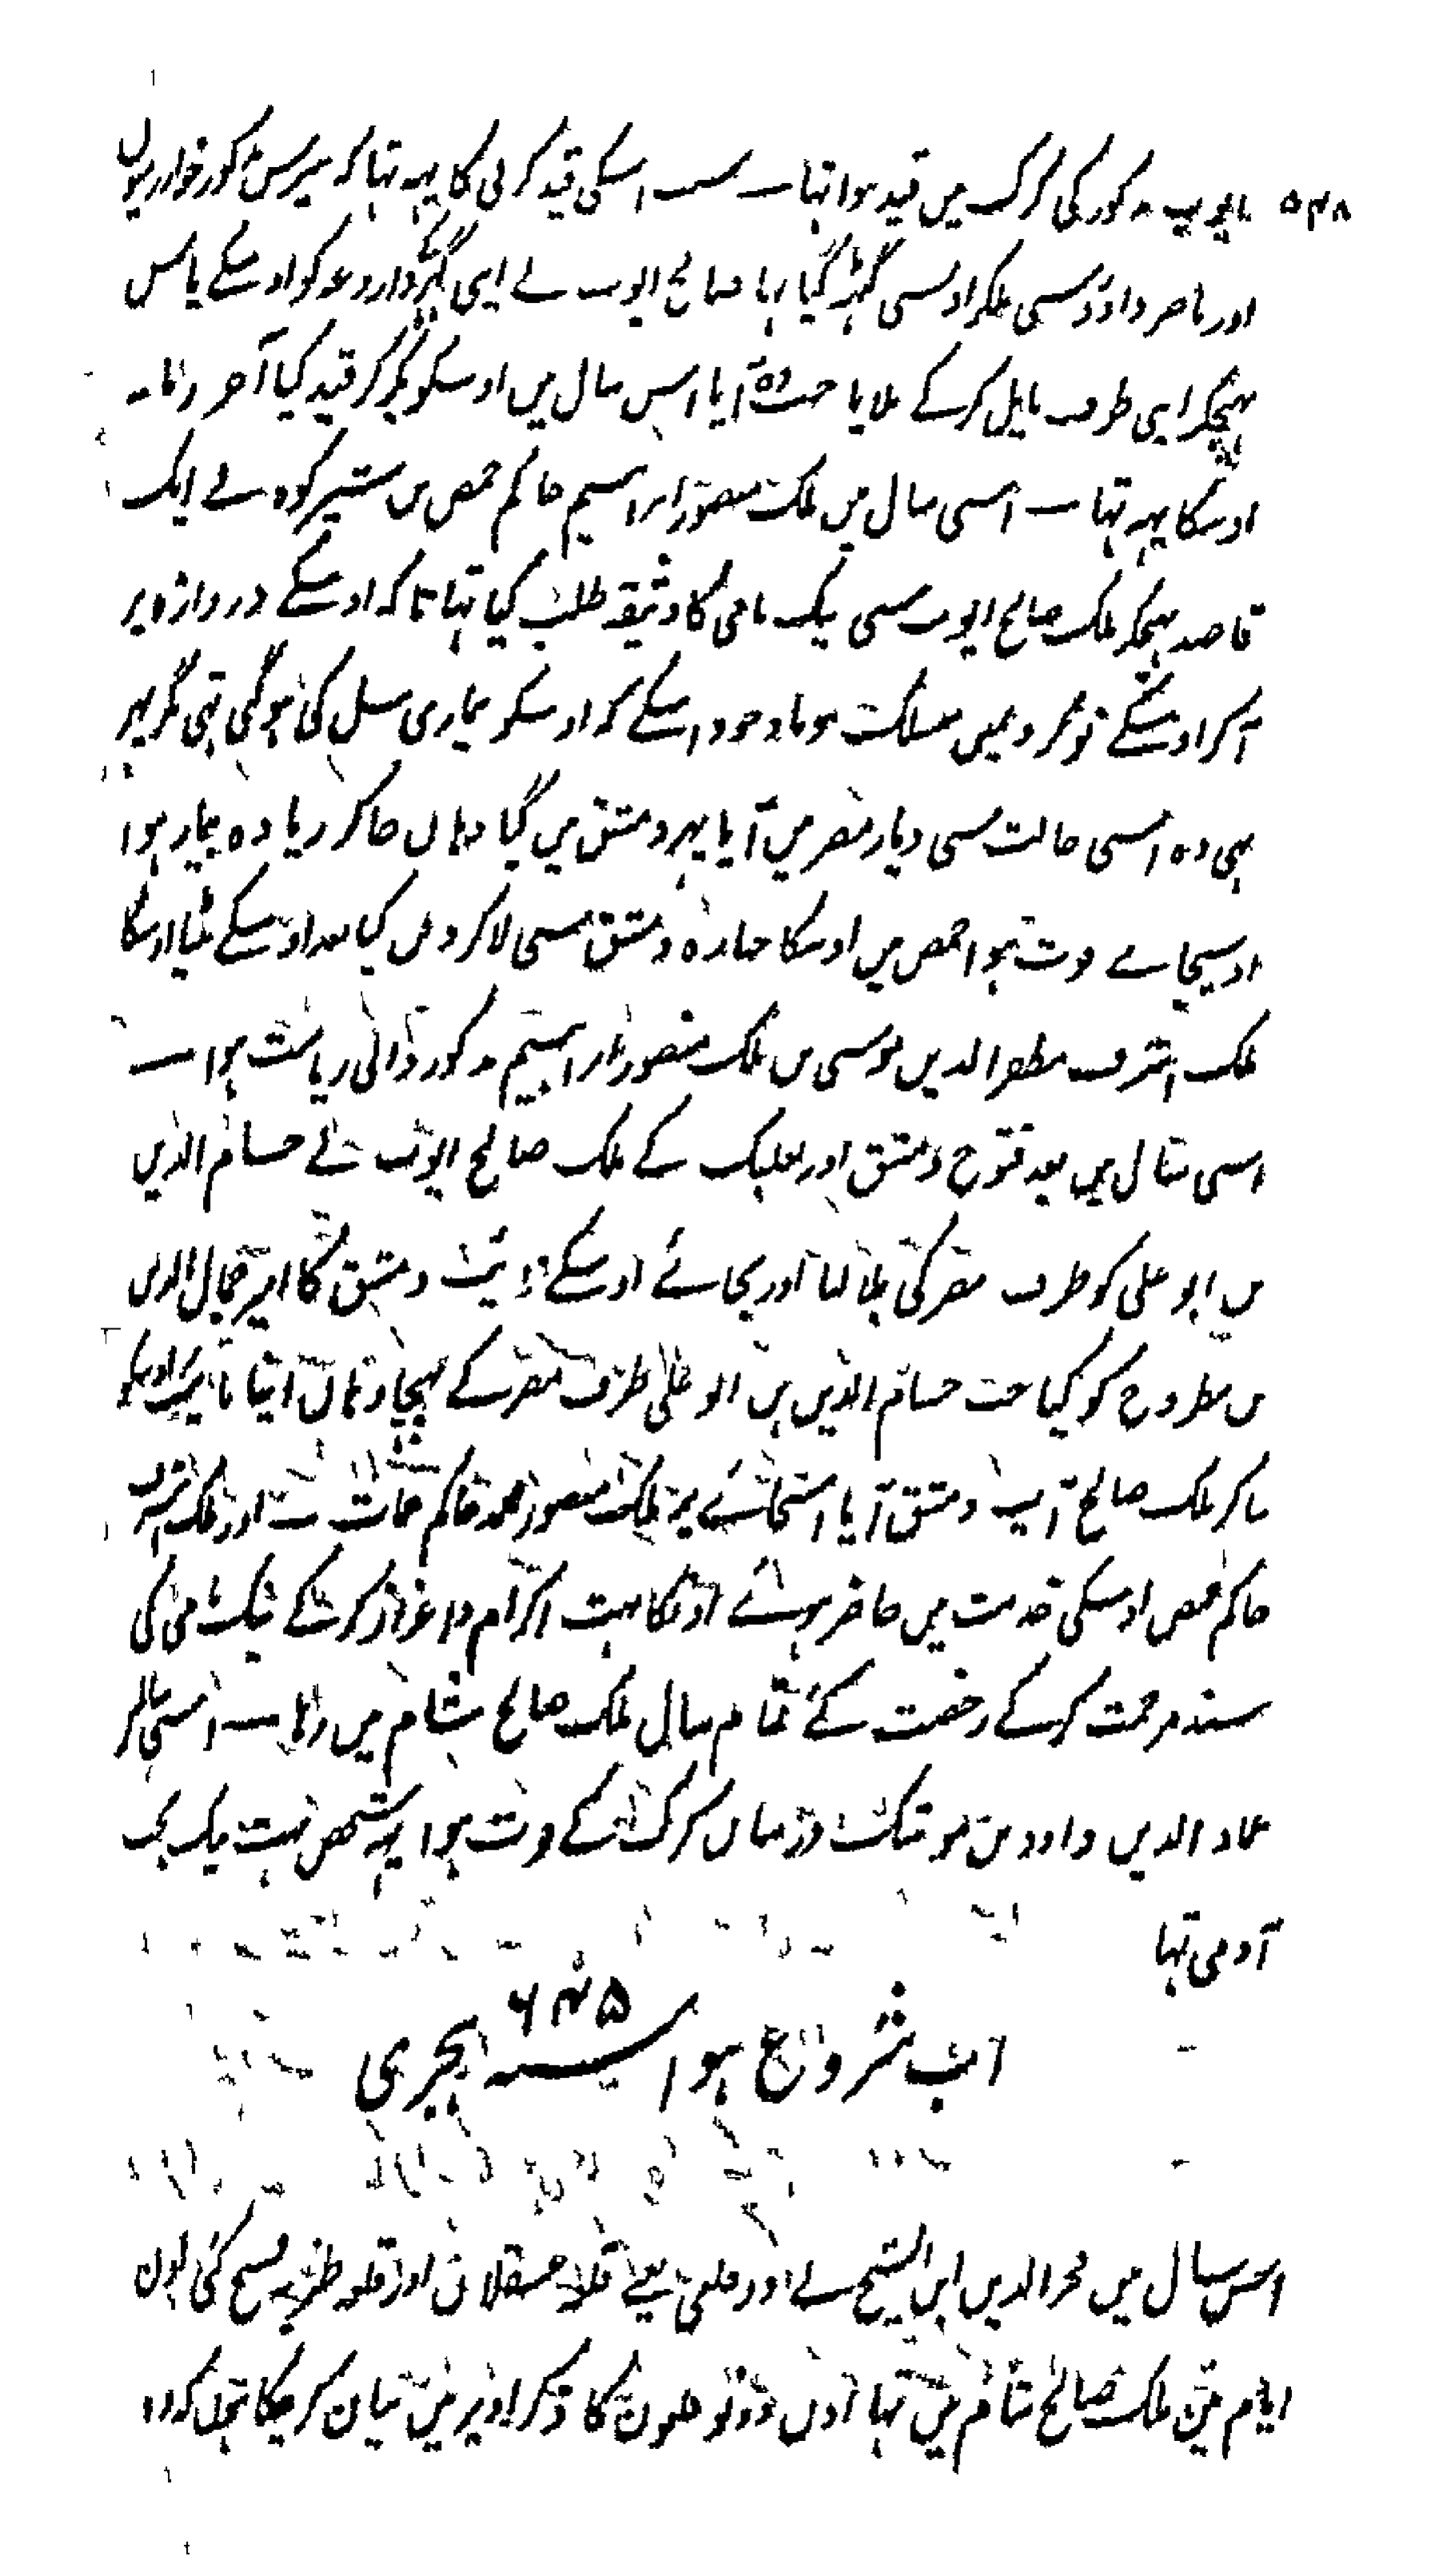 ۵۴۸ ایوب مذکور کی کرک میں قید ہوا تہا سبب اسکی قید کرنی کا یہہ تہا کہ بیبرس مذکور خوارزمیوں
اور ناصر داؤد سی ملکر اوسسی گہٹ گیا تہا صالح ایوب نے اپنی داروغہ کو اوسکے پاس
بہیجکر اپنی طرف مایل کرکے بلایا جب وہ آیا اس سال میں اوسکو پکڑ کر قید کیا آخر زمانہ
اوسکا یہہ تہا اسی سال میں ملک منصور ابراہیم حاکم حمص بن شیرکوہ نے ایک
قاصد بہیجکر ملک صالح ایوب سی نیک نامی کا وثیقہ طلب کیا تہا تا کہ اوسکے دروازہ پر
آکر اوسکے نوکروں میں منسلک ہو باوجود اسکے کہ اوسکو بیماری سل کی ہوگئی تہی مگر پہر
بہی وہ اسی حالت سی دیار مصر میں آیا پہر دمشق میں گیا وہاں جاکر زیادہ بیمار ہوا
اوسیجاے فوت ہوا حمص میں اوسکا جنازہ دمشق سی لاکر دفن کیا بعد اوسکے بیٹا اوسکا
ملک اشرف مظفر الدین موسی بن ملک منصور ابراہیم مذکور والی ریاست ہوا
اسی سال میں بعد فتوح دمشق اور بعلبک کے ملک صالح ایوب نے حسام الدین
بن ابو علی کو طرف مصر کی بلا لیا اور بجائے اوسکے نایب دمشق کا امیر جمال الدین
بن مطروح کو کیا جب حسام الدین بن ابو علی طرف مصر کے پہنچا وہاں اپنا نایب اوسکو
بناکر ملک صالح آپ دمشق آیا اسجائے پر ملک منصور محمد حاکم حمات اور ملک اشرف
حاکم حمص اوسکی خدمت میں حاضر ہوئے اونکا بہت اکرام و اعزاز کرکے نیک نامی کی
سند مرحمت کرکے رخصت کئے تمام سال ملک صالح شام میں رہا اسی سال
عماد الدین داود بن موسک درمیان کرک کے فوت ہوا یہہ شخص بہت نیک بخت
آدمی تہا
اب شروع ہوا سنہ ۶۴۵ ہجری
اس سال میں فخر الدین ابن الشیخ نے دو قلعی یعنے قلعہ عسقلان اور قلعہ طبریہ فتح کئی اون
ایام میں ملک صالح شام میں تہا اون دونو قلعون کا ذکر اوپر میں بیان کر چکا